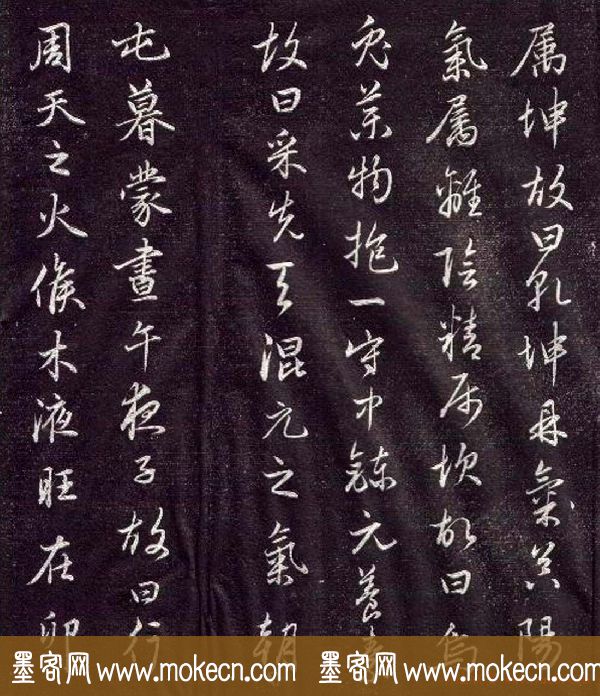 属坤故曰乾坤鼎氣陽
氣屬離陰精属坎故曰烏
兔藥物抱一守中鍊元養素
故曰采先天混元之氣朝
屯暮蒙晝午夜子故曰行
周天之火候木液旺在卯
墨客网 www.mokecn.com 墨客网 www.mokecn.com